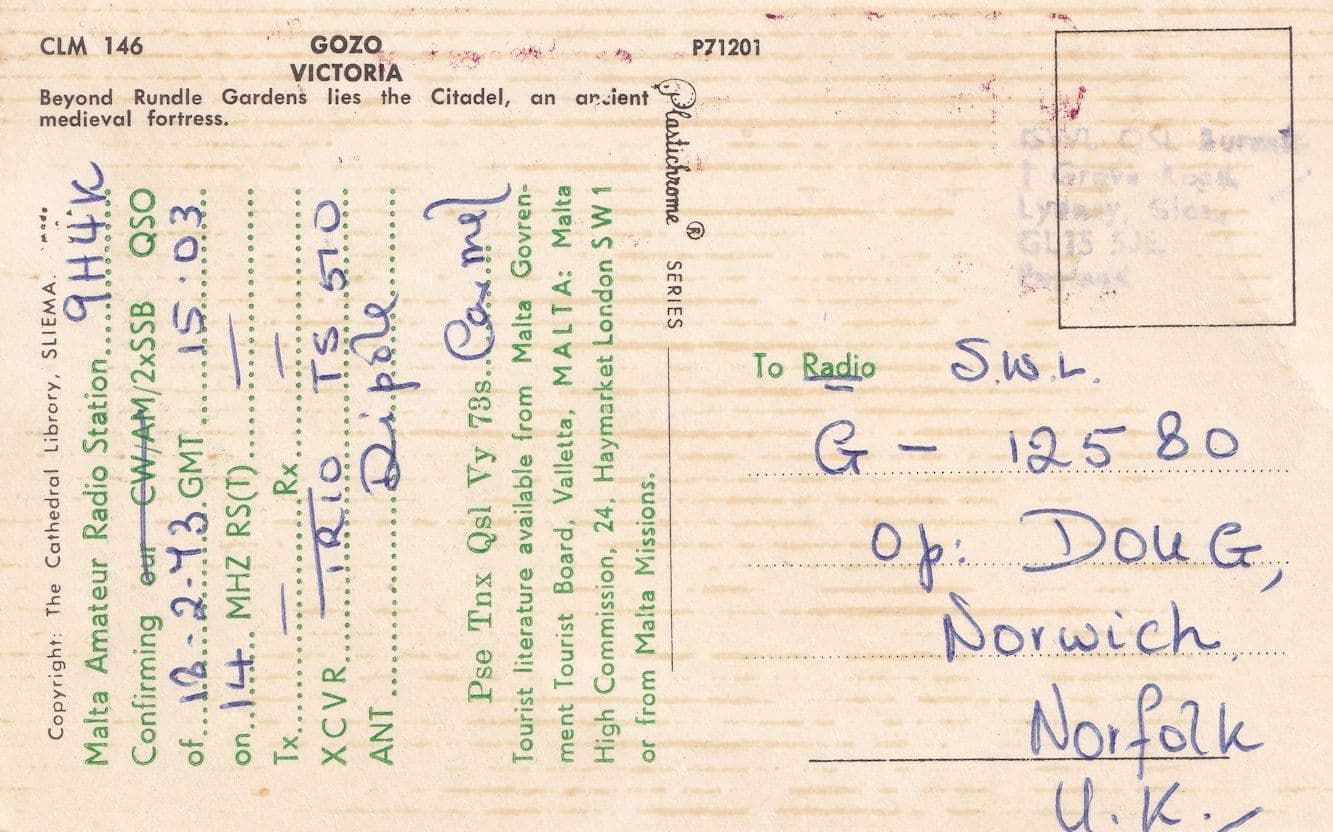 CLM 146 GOZO P71201
VICTORIA
Beyond Rundle Gardens lies the Citadel, an ancient
medieval fortress.
Copyright: The Cathedral Library, SLIEMA.
Malta Amateur Radio Station....9H4K
Confirming our CW/AM/2xSSB QSO
of...18-2-73.GMT......15.03
on..14.. MHZ RS(T)..... —
Tx..... — .....Rx..... —
XCVR.....TRIO TS 510
ANT.....Dipole
Pse Tnx Qsl Vy 73s..Carmel
Tourist literature available from Malta Govren-
ment Tourist Board, Valletta, MALTA: Malta
High Commission, 24, Haymarket London SW1
or from Malta Missions.
Plastichrome ® SERIES
ISWL QSL Bureau
1 Grove Road
Lydney Glos
GL15 5JE
England
To Radio S.W.L.
G - 12580
Op: DOUG,
Norwich,
Norfolk
U.K.